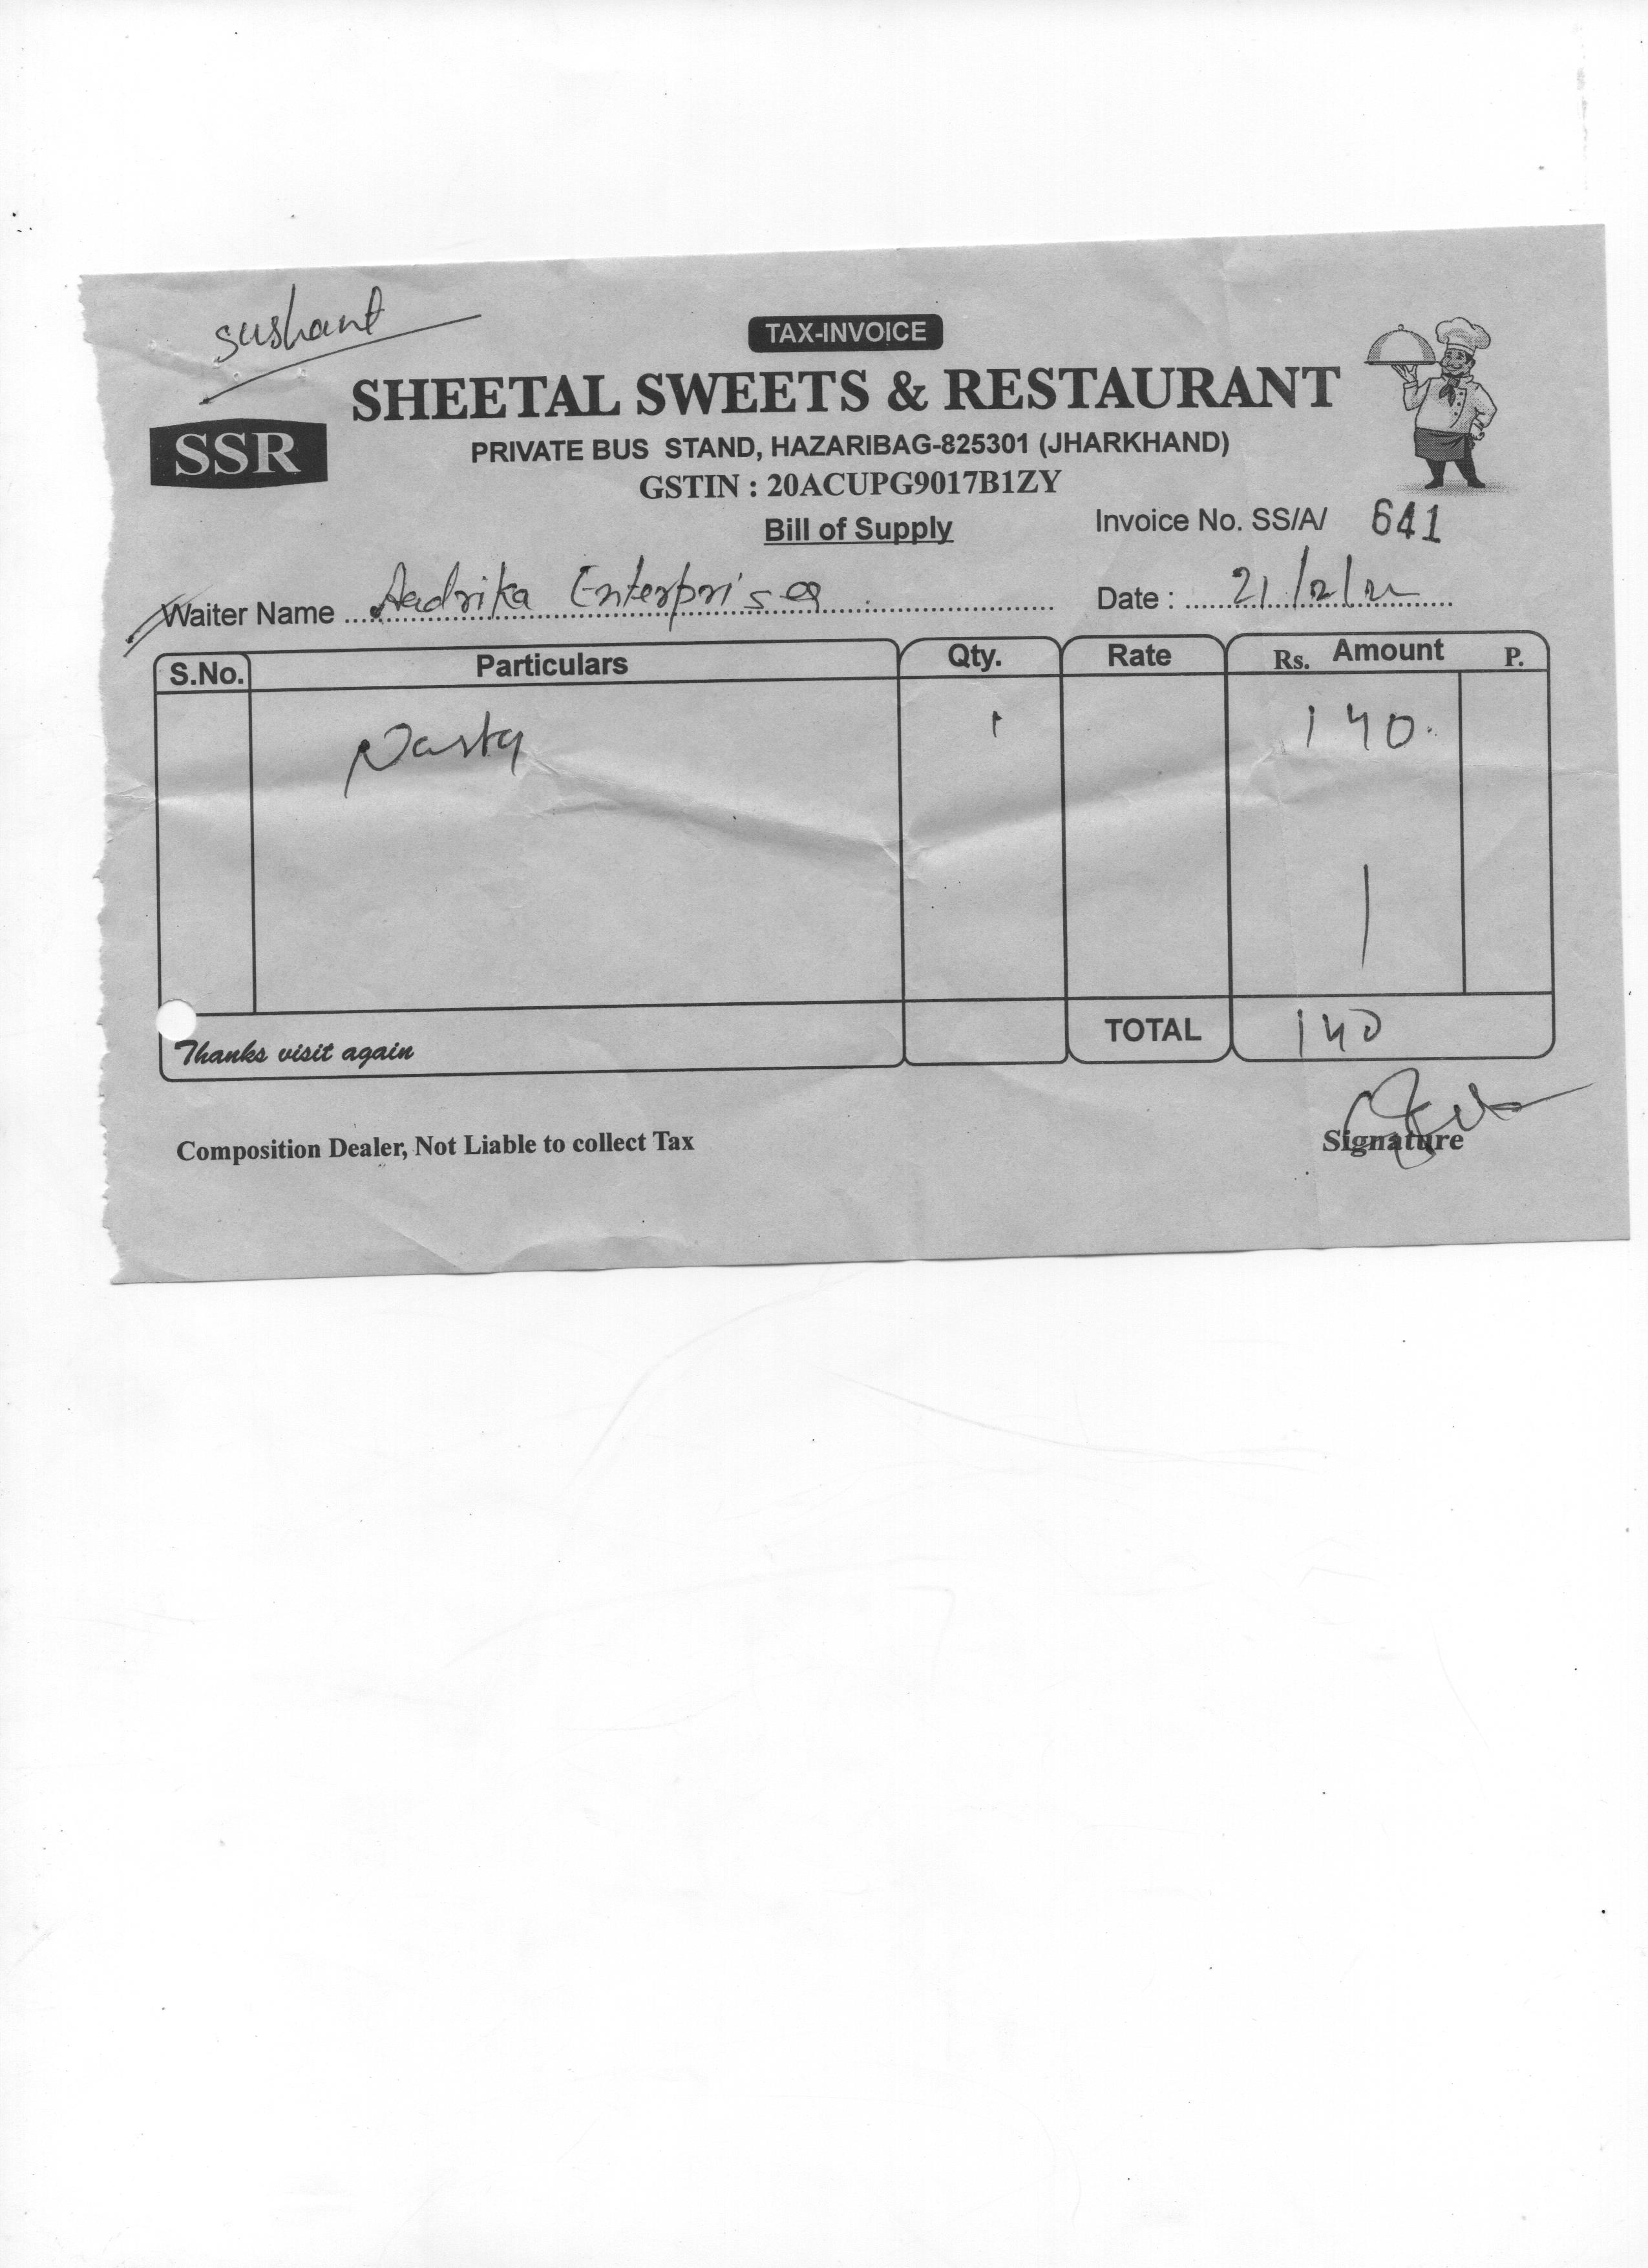 sushant
TAX-INVOICE
SHEETAL SWEETS & RESTAURANT
SSR
PRIVATE BUS STAND, HAZARIBAG-825301 (JHARKHAND)
GSTIN : 20ACUPG9017B1ZY
Bill of Supply
Invoice No. SS/A/ 641
Waiter Name Aadrika Enterprise Date : 21/2/22
S.No. Particulars Qty. Rate Rs. Amount P.
Nasta 1 140
TOTAL 140
Thanks visit again
Composition Dealer, Not Liable to collect Tax
Signature